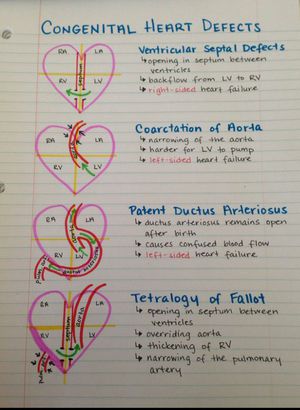 CONGENITAL HEART DEFECTS
RA LA
septum
RV LV
Ventricular Septal Defects
↳ opening in septum between
ventricles
↳ backflow from LV to RV
↳ right-sided heart failure
RA LA
aorta
RV LV
Coarctation of Aorta
↳ narrowing of the aorta
↳ harder for LV to pump
↳ left-sided heart failure
RA LA
aorta
RV LV
pulm. art.
ductus arteriosus
Patent Ductus Arteriosus
↳ ductus arteriosus remains open
after birth
↳ causes confused blood flow
↳ left-sided heart failure
RA LA
septum
aorta
RV LV
Tetralogy of Fallot
↳ opening in septum between
ventricles
↳ overriding aorta
↳ thickening of RV
↳ narrowing of the pulmonary
artery